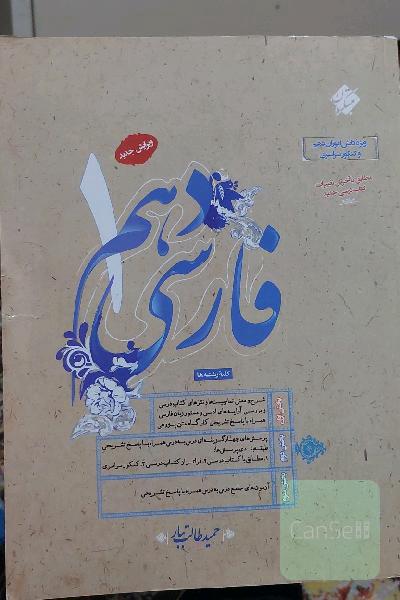 مبتکران
ویژه دانش آموزان دهم
و کنکور سراسری
مطابق با آخرین تغییرات
کتاب درسی جدید
ویرایش جدید
فارسی دهم
۱
کلیه رشته ها
شرح و معنی تمام بیت ها و نثرهای کتاب درسی
و بررسی آرایه های ادبی و دستور زبان فارسی
همراه با پاسخ تشریحی کارگاه متن پژوهی
پرسش های چهارگزینه ای درس به درس همراه با پاسخ تشریحی
آزمون های جامع درس به درس همراه با پاسخ تشریحی
حمید طالب تبار
CanSell